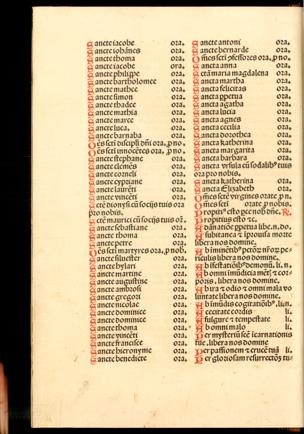 Sancte iacobe ora.
Sancte iohānes ora.
Sancte thoma ora.
Sancte iacobe ora.
Sancte philippe ora.
Sancte bartholomee ora.
Sancte mathee ora.
Sancte simon ora.
Sancte thadee ora.
Sancte mathia ora.
Sancte marce ora.
Sancte luca. ora.
Sancte barnaba ora.
Oēs scti discipli dñi ora. p no.
Oēs scti innocētes ora. p no.
Sancte stephane ora.
Sancte clemēs ora.
Sancte corneli ora.
Sancte cypriane ora.
Sancte laurēti ora.
Sancte vincēti ora.
Sctē dionysi cū socijs tuis ora
pro nobis.
Sctē maurici cū socijs tuis o?.
Sancte sebastiane ora.
Sancte thoma ora.
Sancte petre ora.
Oēs scti martyres ora. p nob.
Sancte siluester ora.
Sancte hylari ora.
Sancte martine ora.
Sancte augustine ora.
Sancte ambrosi ora.
Sancte gregori ora.
Sancte nicolae ora.
Sancte dominice ora.
Sancte dominice ora.
Sancte thoma ora.
Sancte vincēti ora.
Sancte francisce ora.
Sancte hieronyme ora.
Sancte benedicte ora.
Sancte antoni ora.
Sancte bernarde ora.
Oēs scti pfessores ora. p no.
Sancta anna ora.
Sctā maria magdalena ora.
Sancta martha ora.
Sancta felicitas ora.
Sancta ppetua ora.
Sancta agatha ora.
Sancta lucia ora.
Sancta agnes ora.
Sancta cecilia ora.
Sancta dorothea ora.
Sancta katherina ora.
Sancta margarita ora.
Sancta barbara ora.
Sancta vrsula cū sodalib? tuis
ora pro nobis.
Sancta katherina ora.
Sancta Elizabeth ora.
Oēs sctē virgines orate p n.
Oēs scti orate p nobis.
Propiti? esto pce nob dñe. R.
Propitius esto
Ab natiōe ppetua libe. n. do.
A subitanea z īprouisa morte
libera nos domine.
Ab īminētib? pctōr nror pe-
riculis libera nos domine.
Ab īfestatiōib? demonū. li. n.
Ab omni īmūdicia mēt? z cor-
poris. libera nos domine.
Ab ira z odio z omni mala vo
luntate libera nos domine.
Ab īmūdis cogitatiōib?. li. n.
A cecitate cordis li.
A fulgure z tempestate li.
Ab omni malo li.
Per mysteriū scē īcarnationis
tue. libera nos domine
Per passionem z crucē tuā li.
Per gloriosam resurrectōz tu-